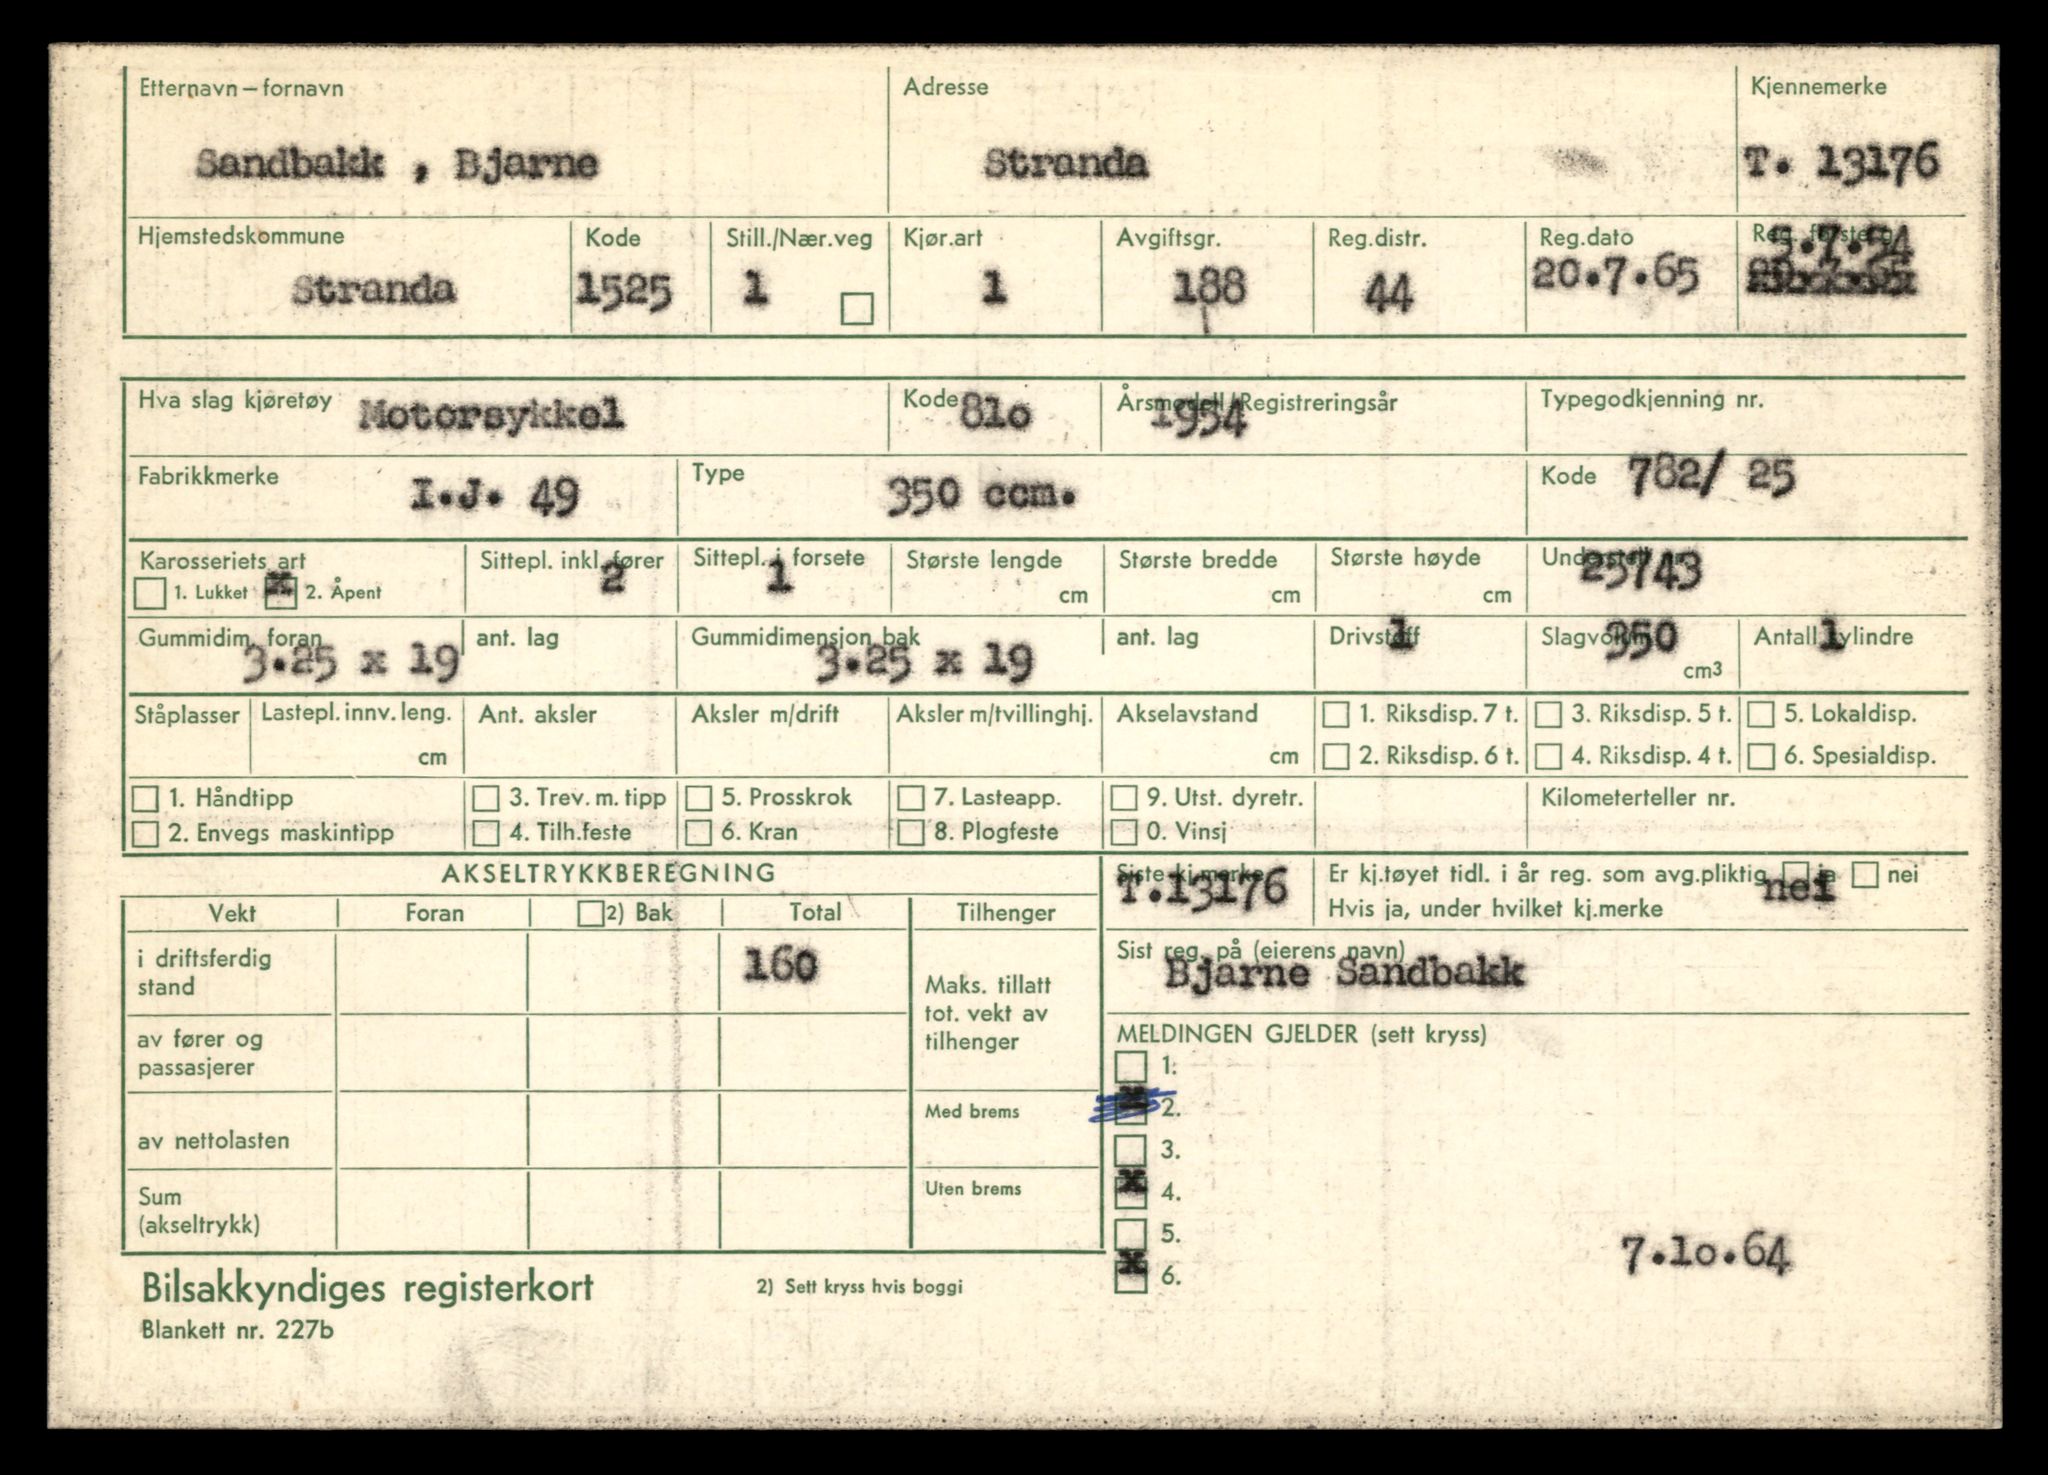 Etternavn – fornavn Adresse Kjennemerke
Sandbakk , Bjarne Stranda T. 13176
Hjemstedskommune Kode Still./Nær.veg Kjør.art Avgiftsgr. Reg.distr. Reg.dato Reg. første g. 3.7.54
Stranda 1525 1 1 188 44 20.7.65
Hva slag kjøretøy Motorsykkel Kode 81o Årsmodell/Registreringsår 1954 Typegodkjenning nr.
Fabrikkmerke I.J. 49 Type 350 ccm. Kode 782/ 25
Karosseriets art Sittepl. inkl. fører 2 Sittepl. i forsete 1 Største lengde Største bredde Største høyde 25743
1. Lukket x 2. Åpent cm cm cm
Gummidim. foran ant. lag Gummidimensjon bak ant. lag Drivstoff 1 Slagvolum 350 Antall sylindre 1
3.25 x 19 3.25 x 19 cm3
Ståplasser Lastepl. innv. leng. Ant. aksler Aksler m/drift Aksler m/tvillinghj. Akselavstand 1. Riksdisp. 7 t. 3. Riksdisp. 5 t. 5. Lokaldisp.
cm cm 2. Riksdisp. 6 t. 4. Riksdisp. 4 t. 6. Spesialdisp.
1. Håndtipp 3. Trev. m. tipp 5. Prosskrok 7. Lasteapp. 9. Utst. dyretr. Kilometerteller nr.
2. Envegs maskintipp 4. Tilh.feste 6. Kran 8. Plogfeste 0. Vinsj
AKSELTRYKKBEREGNING Siste kj.merke T.13176 Er kj.tøyet tidl. i år reg. som avg.pliktig ja nei nei
Vekt Foran 2) Bak Total Tilhenger Hvis ja, under hvilket kj.merke
i driftsferdig stand 160 Maks. tillatt tot. vekt av tilhenger Sist reg. på (eierens navn)
Bjarne Sandbakk
av fører og passasjerer MELDINGEN GJELDER (sett kryss)
1.
av nettolasten Med brems x 2.
3.
Sum (akseltrykk) Uten brems x 4.
5.
x 6. 7.1o.64
Bilsakkyndiges registerkort 2) Sett kryss hvis boggi
Blankett nr. 227b